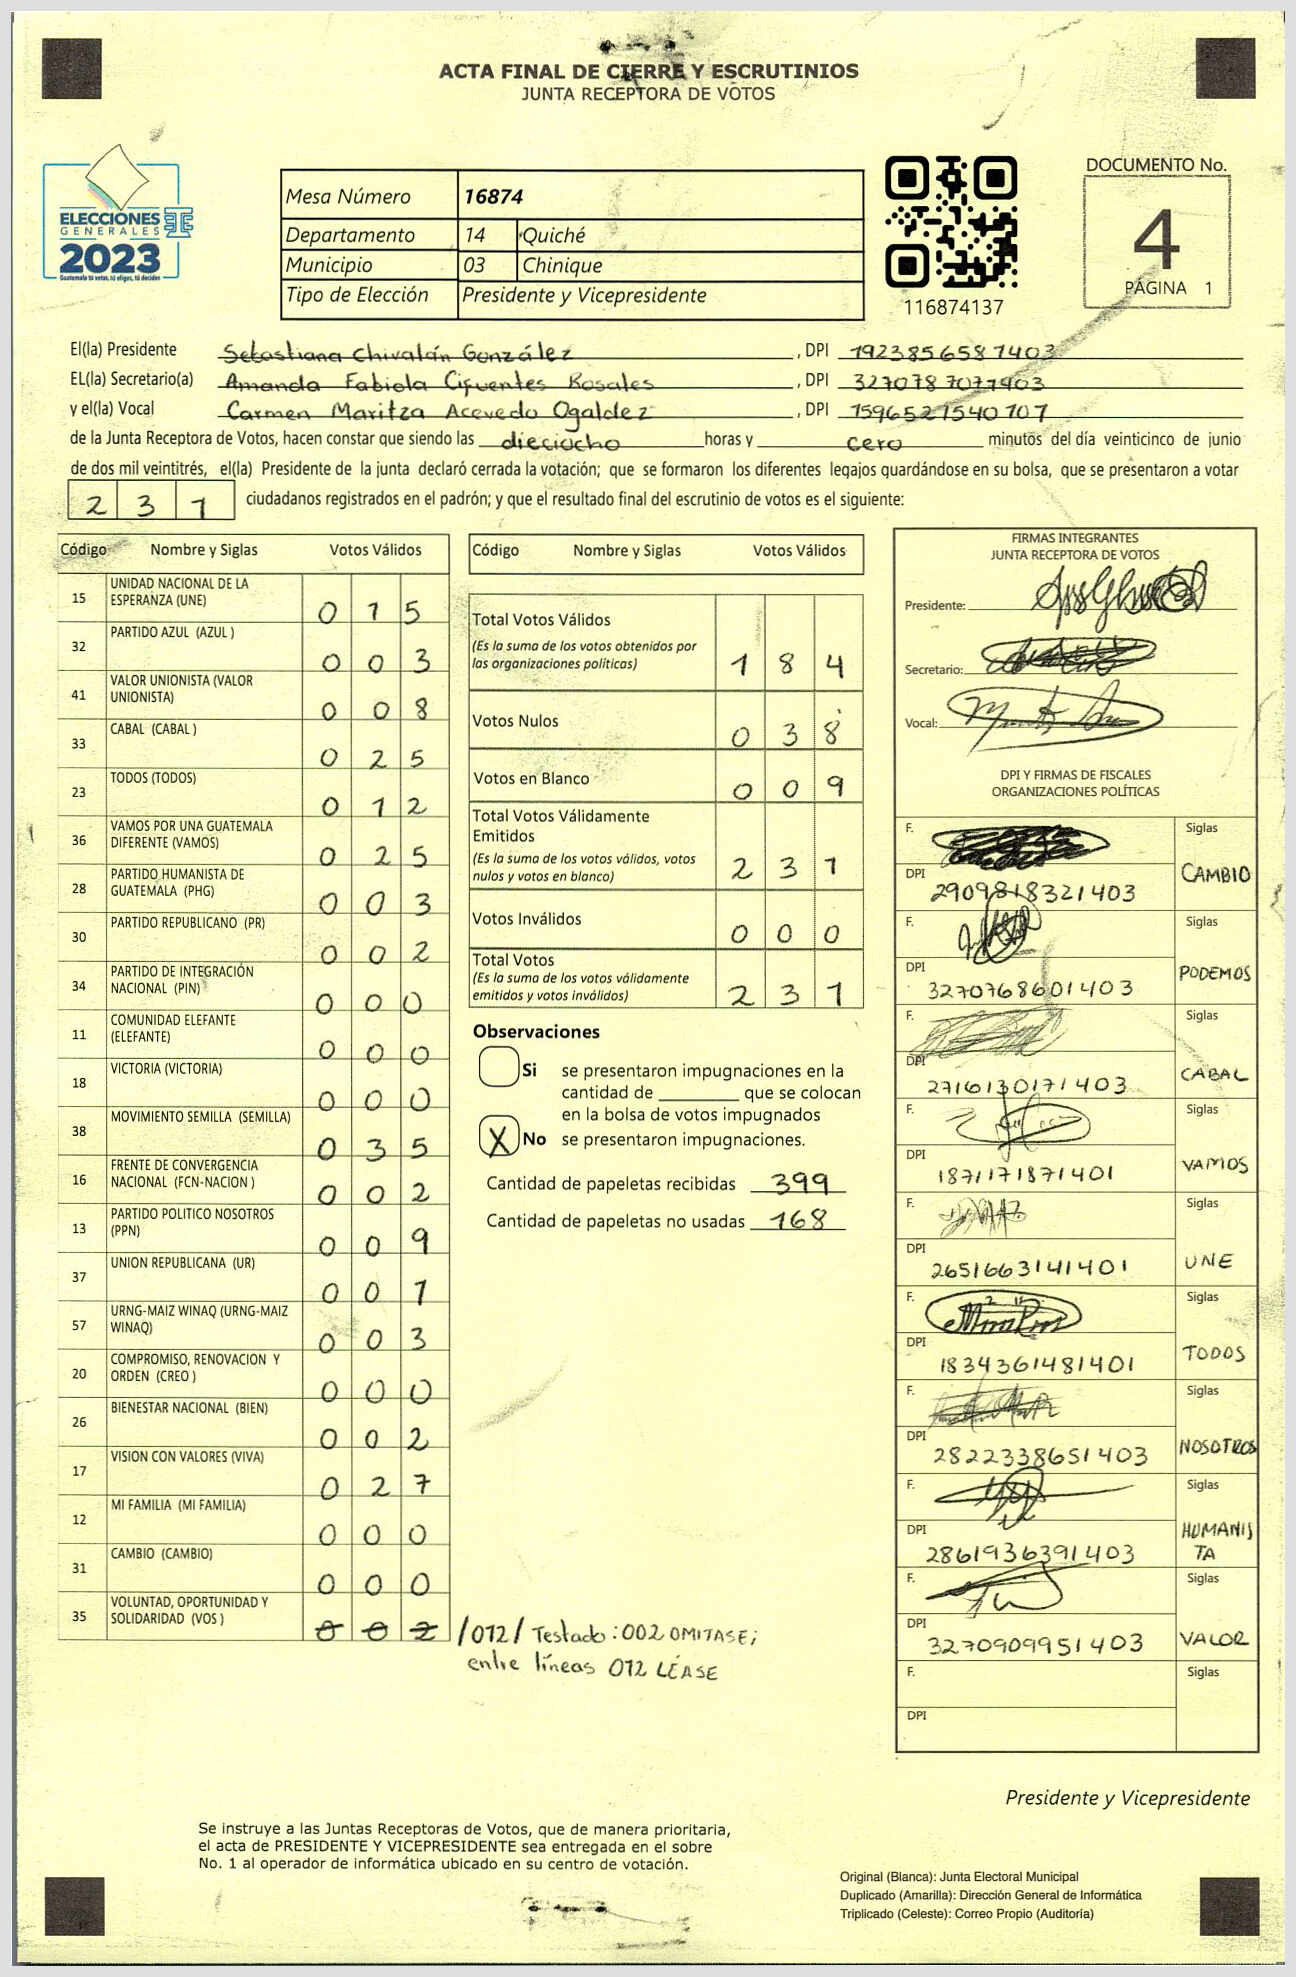 ACTA FINAL DE CIERRE Y ESCRUTINIOS
JUNTA RECEPTORA DE VOTOS
ELECCIONES
GENERALES
2023
Guatemala tú votas, tú eliges, tú decides
Mesa Número 16874
Departamento 14 Quiché
Municipio 03 Chinique
Tipo de Elección Presidente y Vicepresidente
116874137
DOCUMENTO No.
4
PÁGINA 1
El(la) Presidente Sebastiana Chivalán González, DPI 1923856587403
EL(la) Secretario(a) Amanda Fabiola Cifuentes Rosales, DPI 3270787077403
y el(la) Vocal Carmen Maritza Acevedo Ogaldez, DPI 1596521540101
de la Junta Receptora de Votos, hacen constar que siendo las dieciocho horas y cero minutos del día veinticinco de junio
de dos mil veintitrés, el(la) Presidente de la junta declaró cerrada la votación; que se formaron los diferentes legajos guardándose en su bolsa, que se presentaron a votar
231 ciudadanos registrados en el padrón; y que el resultado final del escrutinio de votos es el siguiente:
Código Nombre y Siglas Votos Válidos
15 UNIDAD NACIONAL DE LA ESPERANZA (UNE) 015
32 PARTIDO AZUL (AZUL ) 003
41 VALOR UNIONISTA (VALOR UNIONISTA) 008
33 CABAL (CABAL ) 025
23 TODOS (TODOS) 012
36 VAMOS POR UNA GUATEMALA DIFERENTE (VAMOS) 025
28 PARTIDO HUMANISTA DE GUATEMALA (PHG) 003
30 PARTIDO REPUBLICANO (PR) 002
34 PARTIDO DE INTEGRACIÓN NACIONAL (PIN) 000
11 COMUNIDAD ELEFANTE (ELEFANTE) 000
18 VICTORIA (VICTORIA) 000
38 MOVIMIENTO SEMILLA (SEMILLA) 035
16 FRENTE DE CONVERGENCIA NACIONAL (FCN-NACION ) 002
13 PARTIDO POLITICO NOSOTROS (PPN) 009
37 UNION REPUBLICANA (UR) 001
57 URNG-MAIZ WINAQ (URNG-MAIZ WINAQ) 003
20 COMPROMISO, RENOVACION Y ORDEN (CREO ) 000
26 BIENESTAR NACIONAL (BIEN) 002
17 VISION CON VALORES (VIVA) 027
12 MI FAMILIA (MI FAMILIA) 000
31 CAMBIO (CAMBIO) 000
35 VOLUNTAD, OPORTUNIDAD Y SOLIDARIDAD (VOS ) 002 /012/ Testado: 002 OMITASE;
entre líneas 012 LÉASE
Código Nombre y Siglas Votos Válidos
Total Votos Válidos
(Es la suma de los votos obtenidos por
las organizaciones políticas) 184
Votos Nulos 038
Votos en Blanco 009
Total Votos Válidamente
Emitidos
(Es la suma de los votos válidos, votos
nulos y votos en blanco) 231
Votos Inválidos 000
Total Votos
(Es la suma de los votos válidamente
emitidos y votos inválidos) 231
Observaciones
Si se presentaron impugnaciones en la
cantidad de ________ que se colocan
en la bolsa de votos impugnados
X No se presentaron impugnaciones.
Cantidad de papeletas recibidas 399
Cantidad de papeletas no usadas 168
FIRMAS INTEGRANTES
JUNTA RECEPTORA DE VOTOS
Presidente:
Secretario:
Vocal:
DPI Y FIRMAS DE FISCALES
ORGANIZACIONES POLÍTICAS
F. Siglas
DPI 2909818321403 CAMBIO
F. Siglas
DPI 3270768601403 PODEMOS
F. Siglas
DPI 2716130171403 CABAL
F. Siglas
DPI 1871171871401 VAMOS
F. Siglas
DPI 2651663141401 UNE
F. Siglas
DPI 1834361481401 TODOS
F. Siglas
DPI 2822338651403 NOSOTROS
F. Siglas
DPI 2861936391403 HUMANIS
TA
F. Siglas
DPI 3270909951403 VALOR
F. Siglas
DPI
Presidente y Vicepresidente
Se instruye a las Juntas Receptoras de Votos, que de manera prioritaria,
el acta de PRESIDENTE Y VICEPRESIDENTE sea entregada en el sobre
No. 1 al operador de informática ubicado en su centro de votación.
Original (Blanca): Junta Electoral Municipal
Duplicado (Amarilla): Dirección General de Informática
Triplicado (Celeste): Correo Propio (Auditoría)